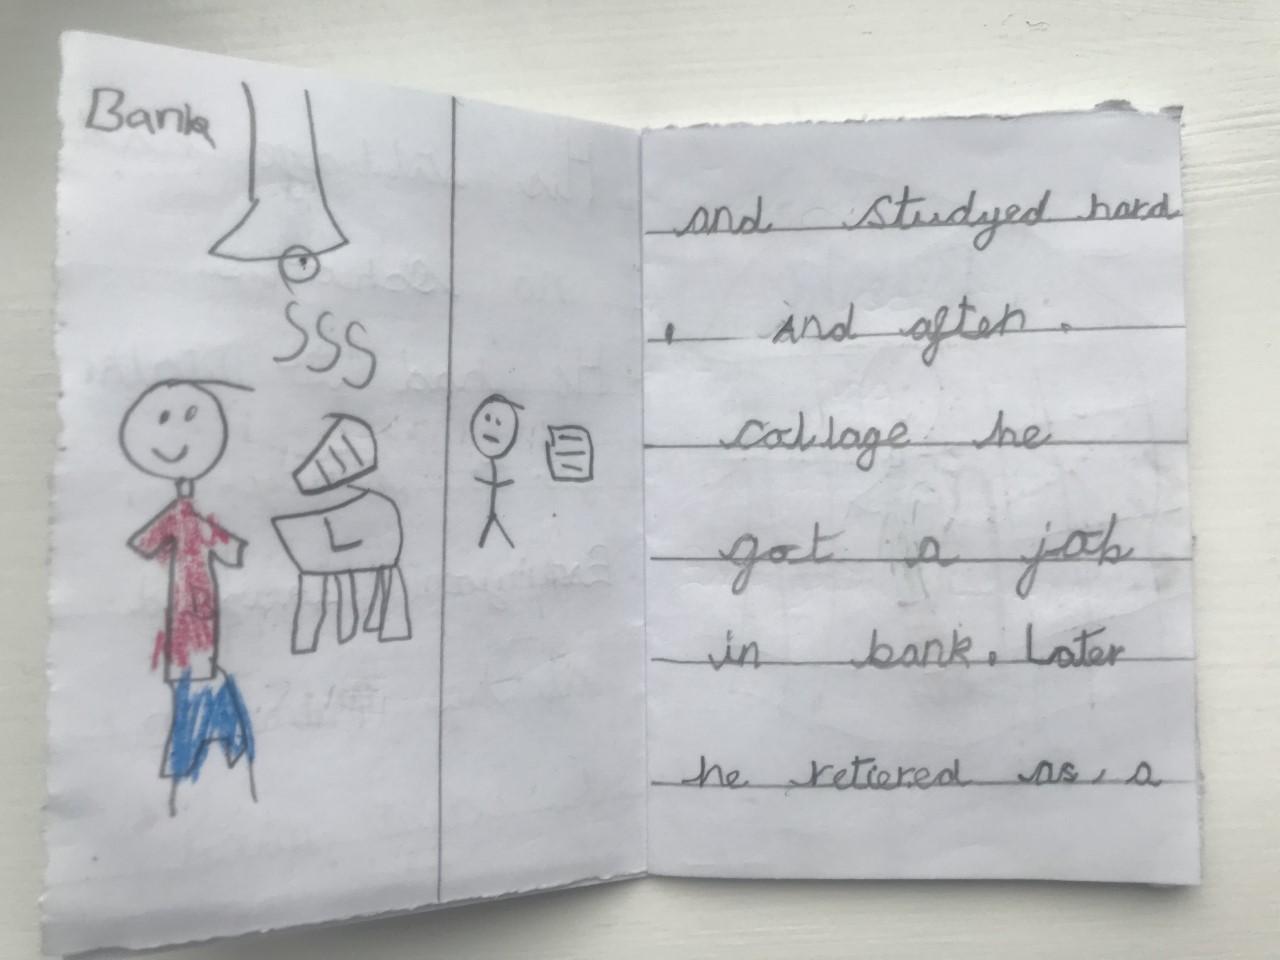 Bank
SSS
L
B
and studyed hard
. And after.
collage he
got a job
in bank. Later
he retiered as, a